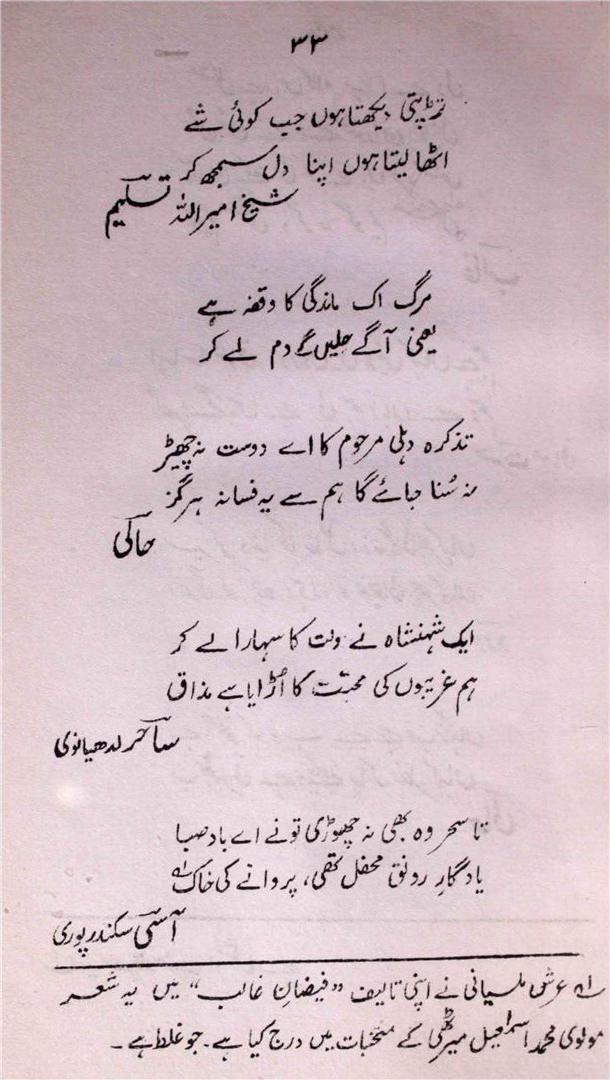 ۳۳
تڑپتی دیکھتا ہوں جب کوئی شے
اٹھا لیتا ہوں اپنا دل سمجھ کر
شیخ امیر اللہ تسلیم
مرگ اک ماندگی کا وقفہ ہے
یعنی آگے چلیں گے دم لے کر
تذکرہ دہلی مرحوم کا اے دوست نہ چھیڑ
نہ سُنا جائے گا ہم سے یہ فسانہ ہرگز
حالی
ایک شہنشاہ نے دولت کا سہارا لے کر
ہم غریبوں کی محبت کا اُڑایا ہے مذاق
ساحر لدھیانوی
تا سحر وہ بھی نہ چھوڑی تو نے اے باد صبا
یادگارِ رونق محفل تھی، پروانے کی خاک ؎۱
آسی سکندرپوری
؎۱ عرش ملسیانی نے اپنی تالیف "فیضانِ غالب" میں یہ شعر
مولوی محمد اسمٰعیل میرٹھی کے منتخبات میں درج کیا ہے۔ جو غلط ہے۔